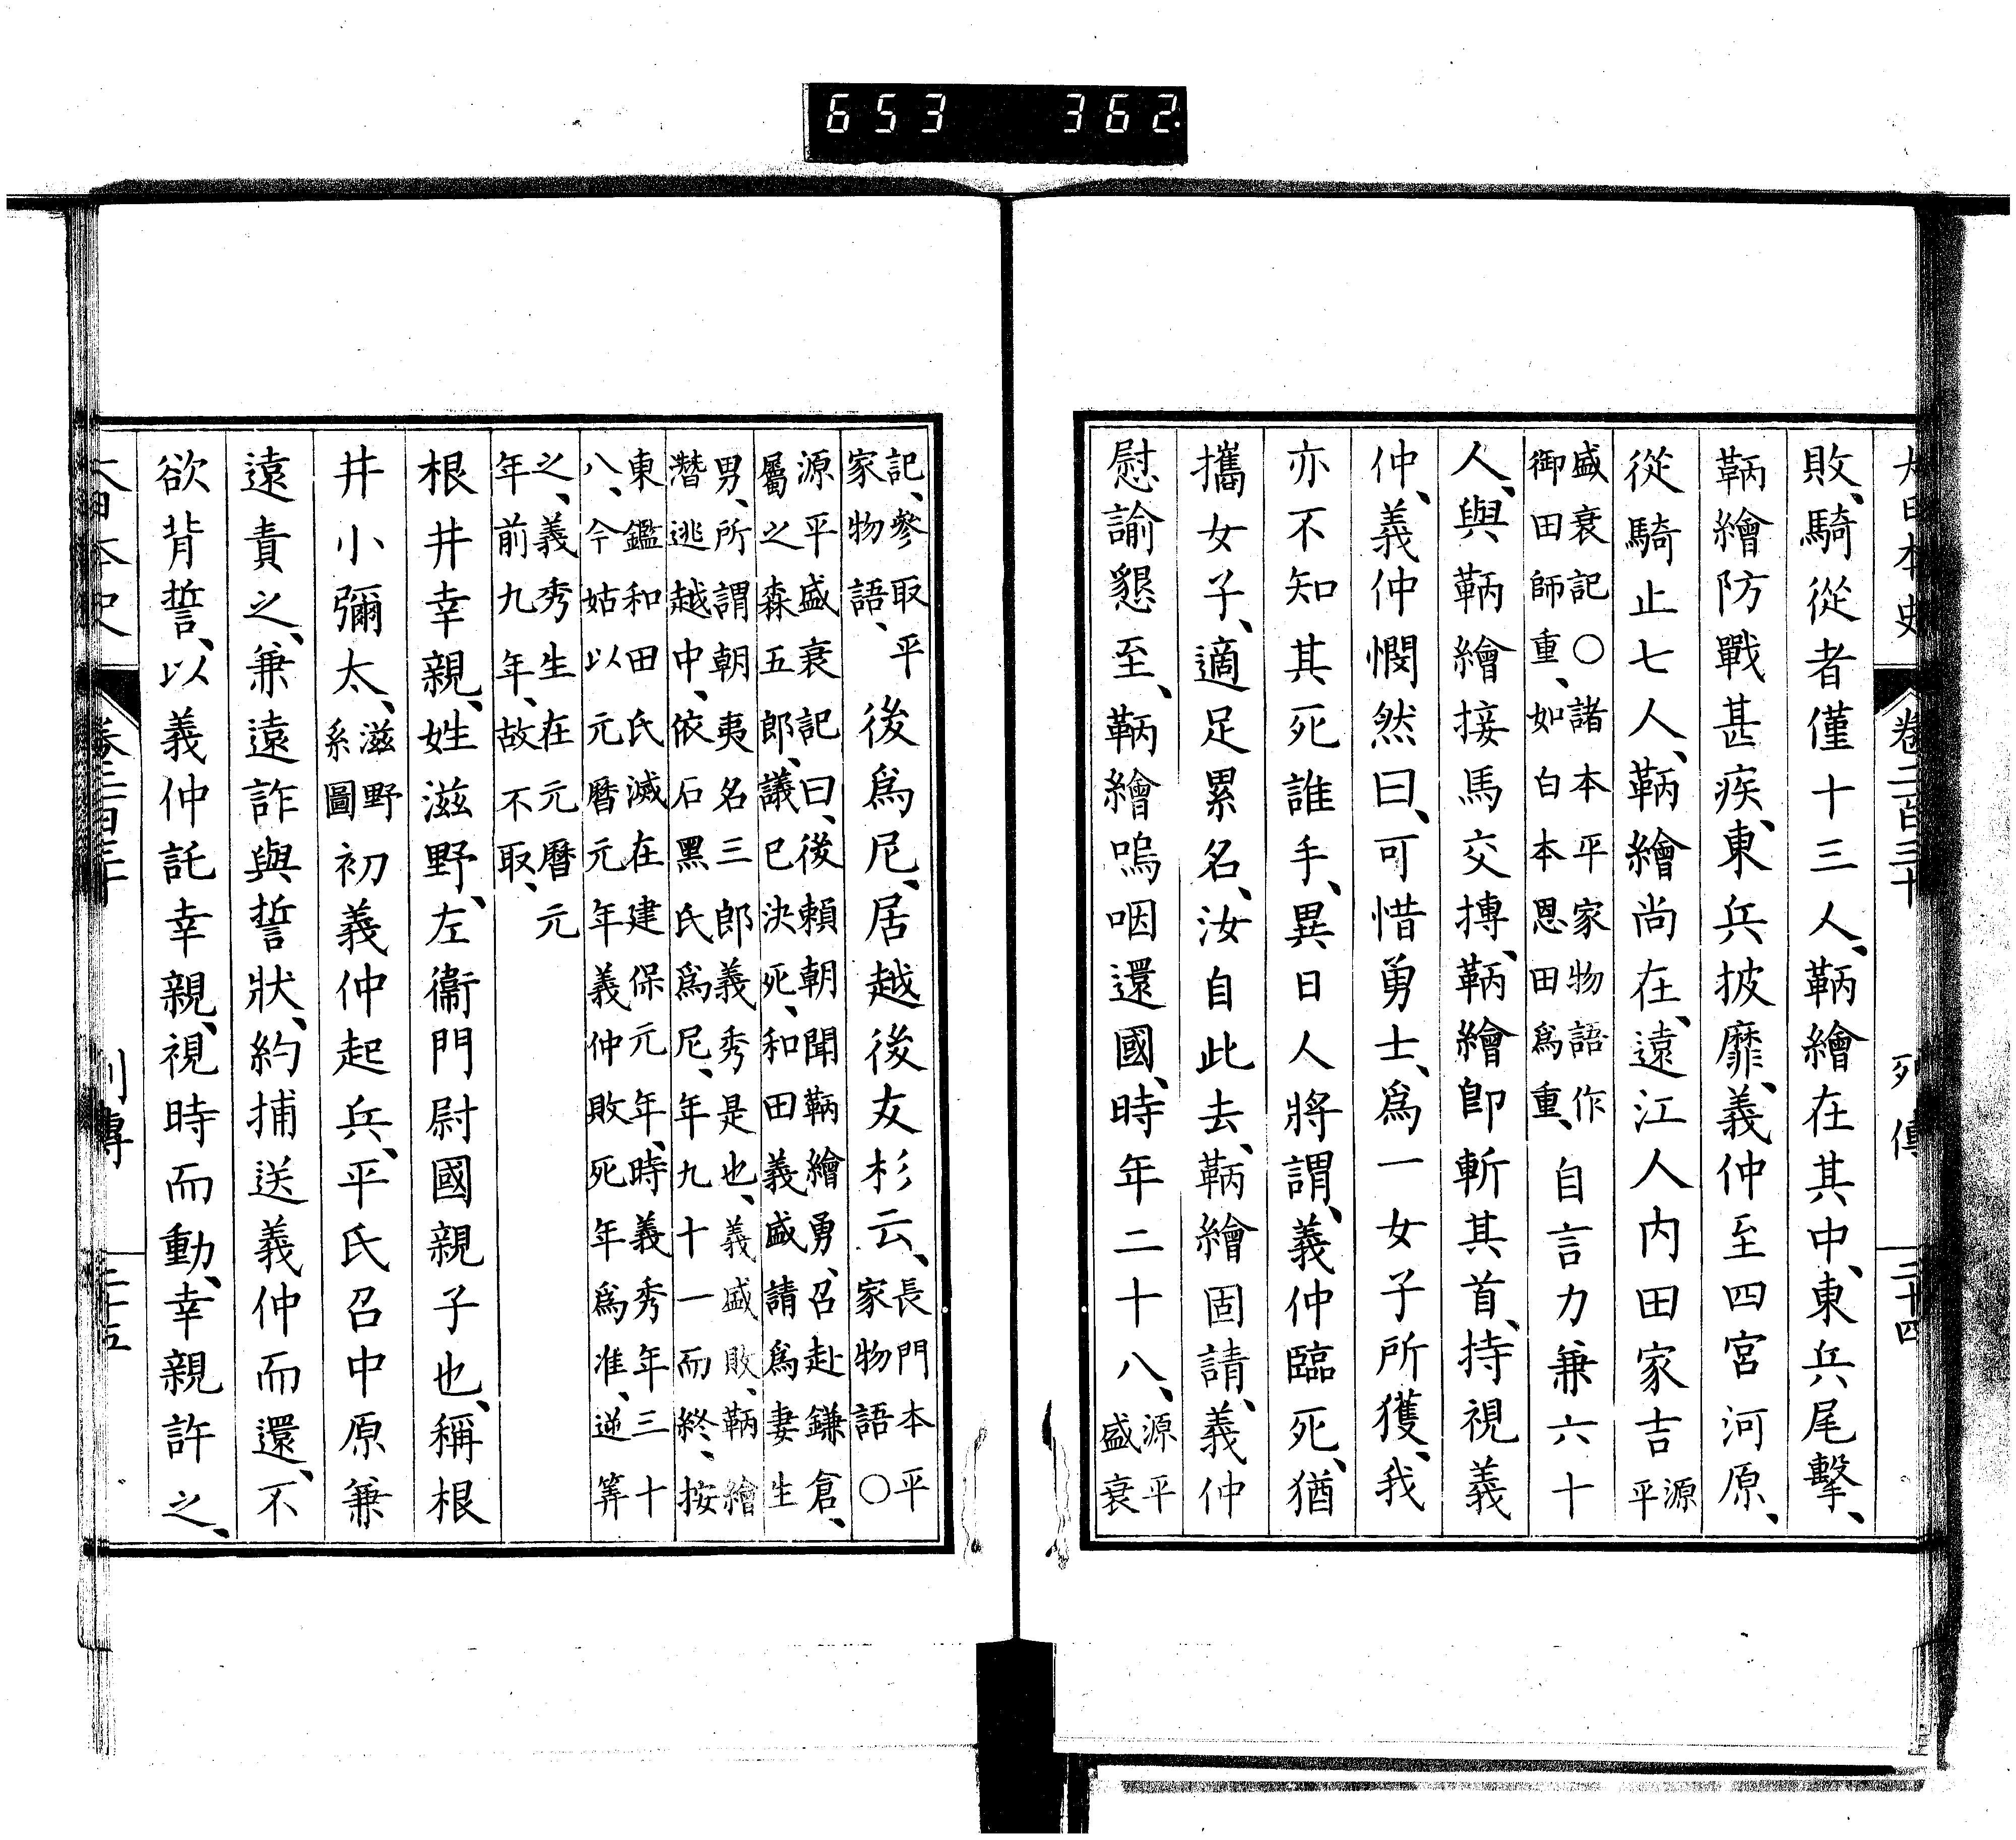 653 362
大日本史 卷二百三十 列傳 三十四
敗、騎從者僅十三人、鞆繪在其中、東兵尾擊、
鞆繪防戰甚疾、東兵披靡、義仲至四宮河原、
從騎止七人、鞆繪尚在、遠江人内田家吉源平
盛衰記〇諸本平家物語作
御田師重、如白本恩田爲重、自言力兼六十
人、與鞆繪接馬交搏、鞆繪卽斬其首、持視義
仲、義仲憫然曰、可惜勇士、爲一女子所獲、我
亦不知其死誰手、異日人將謂、義仲臨死、猶
攜女子、適足累名、汝自此去、鞆繪固請、義仲
慰諭懇至、鞆繪嗚咽還國、時年二十八、源平盛衰
記、參取平家物語、後爲尼、居越後友杉云、長門本平家物語〇
源平盛衰記曰、後賴朝聞鞆繪勇、召赴鎌倉、
屬之森五郎、議已決死、和田義盛請爲妻生
男、所謂朝夷名三郎義秀是也、義盛敗、鞆繪
潛逃越中、依石黑氏爲尼、年九十一而終、按
東鑑和田氏滅在建保元年、時義秀年三十
八、今姑以元曆元年義仲敗死年爲准、逆筭
之、義秀生在元曆元
年前九年、故不取、
根井幸親、姓滋野、左衞門尉國親子也、稱根
井小彌太、滋野系圖初義仲起兵、平氏召中原兼
遠責之、兼遠詐與誓狀、約捕送義仲而還、不
欲背誓、以義仲託幸親、視時而動、幸親許之、
大日本史 卷二百三十 列傳 三十五